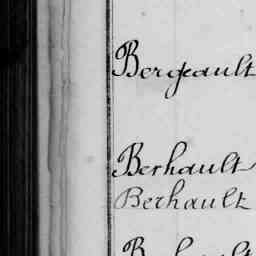 Bergeault
Berhault
Berhault